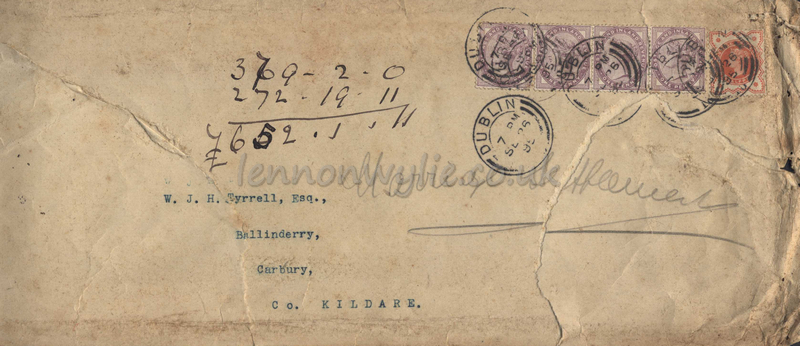 DUBLIN
DUBLIN
7 PM
SE 26
95
369 - 2 - 0
272 - 19 - 11
£652 . 1 . 11
lennonwylie.co.uk
W. J. H. Tyrrell, Esq.,
Ballinderry,
Carbury,
Co. KILDARE.